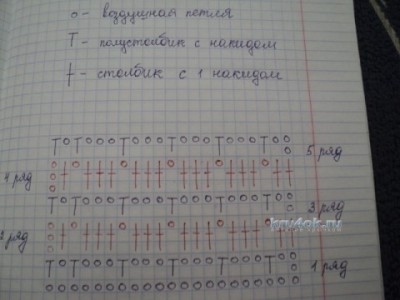 o - воздушная петля
T - полустолбик с накидом
† - столбик с 1 накидом
5 ряд
4 ряд
3 ряд
2 ряд
1 ряд